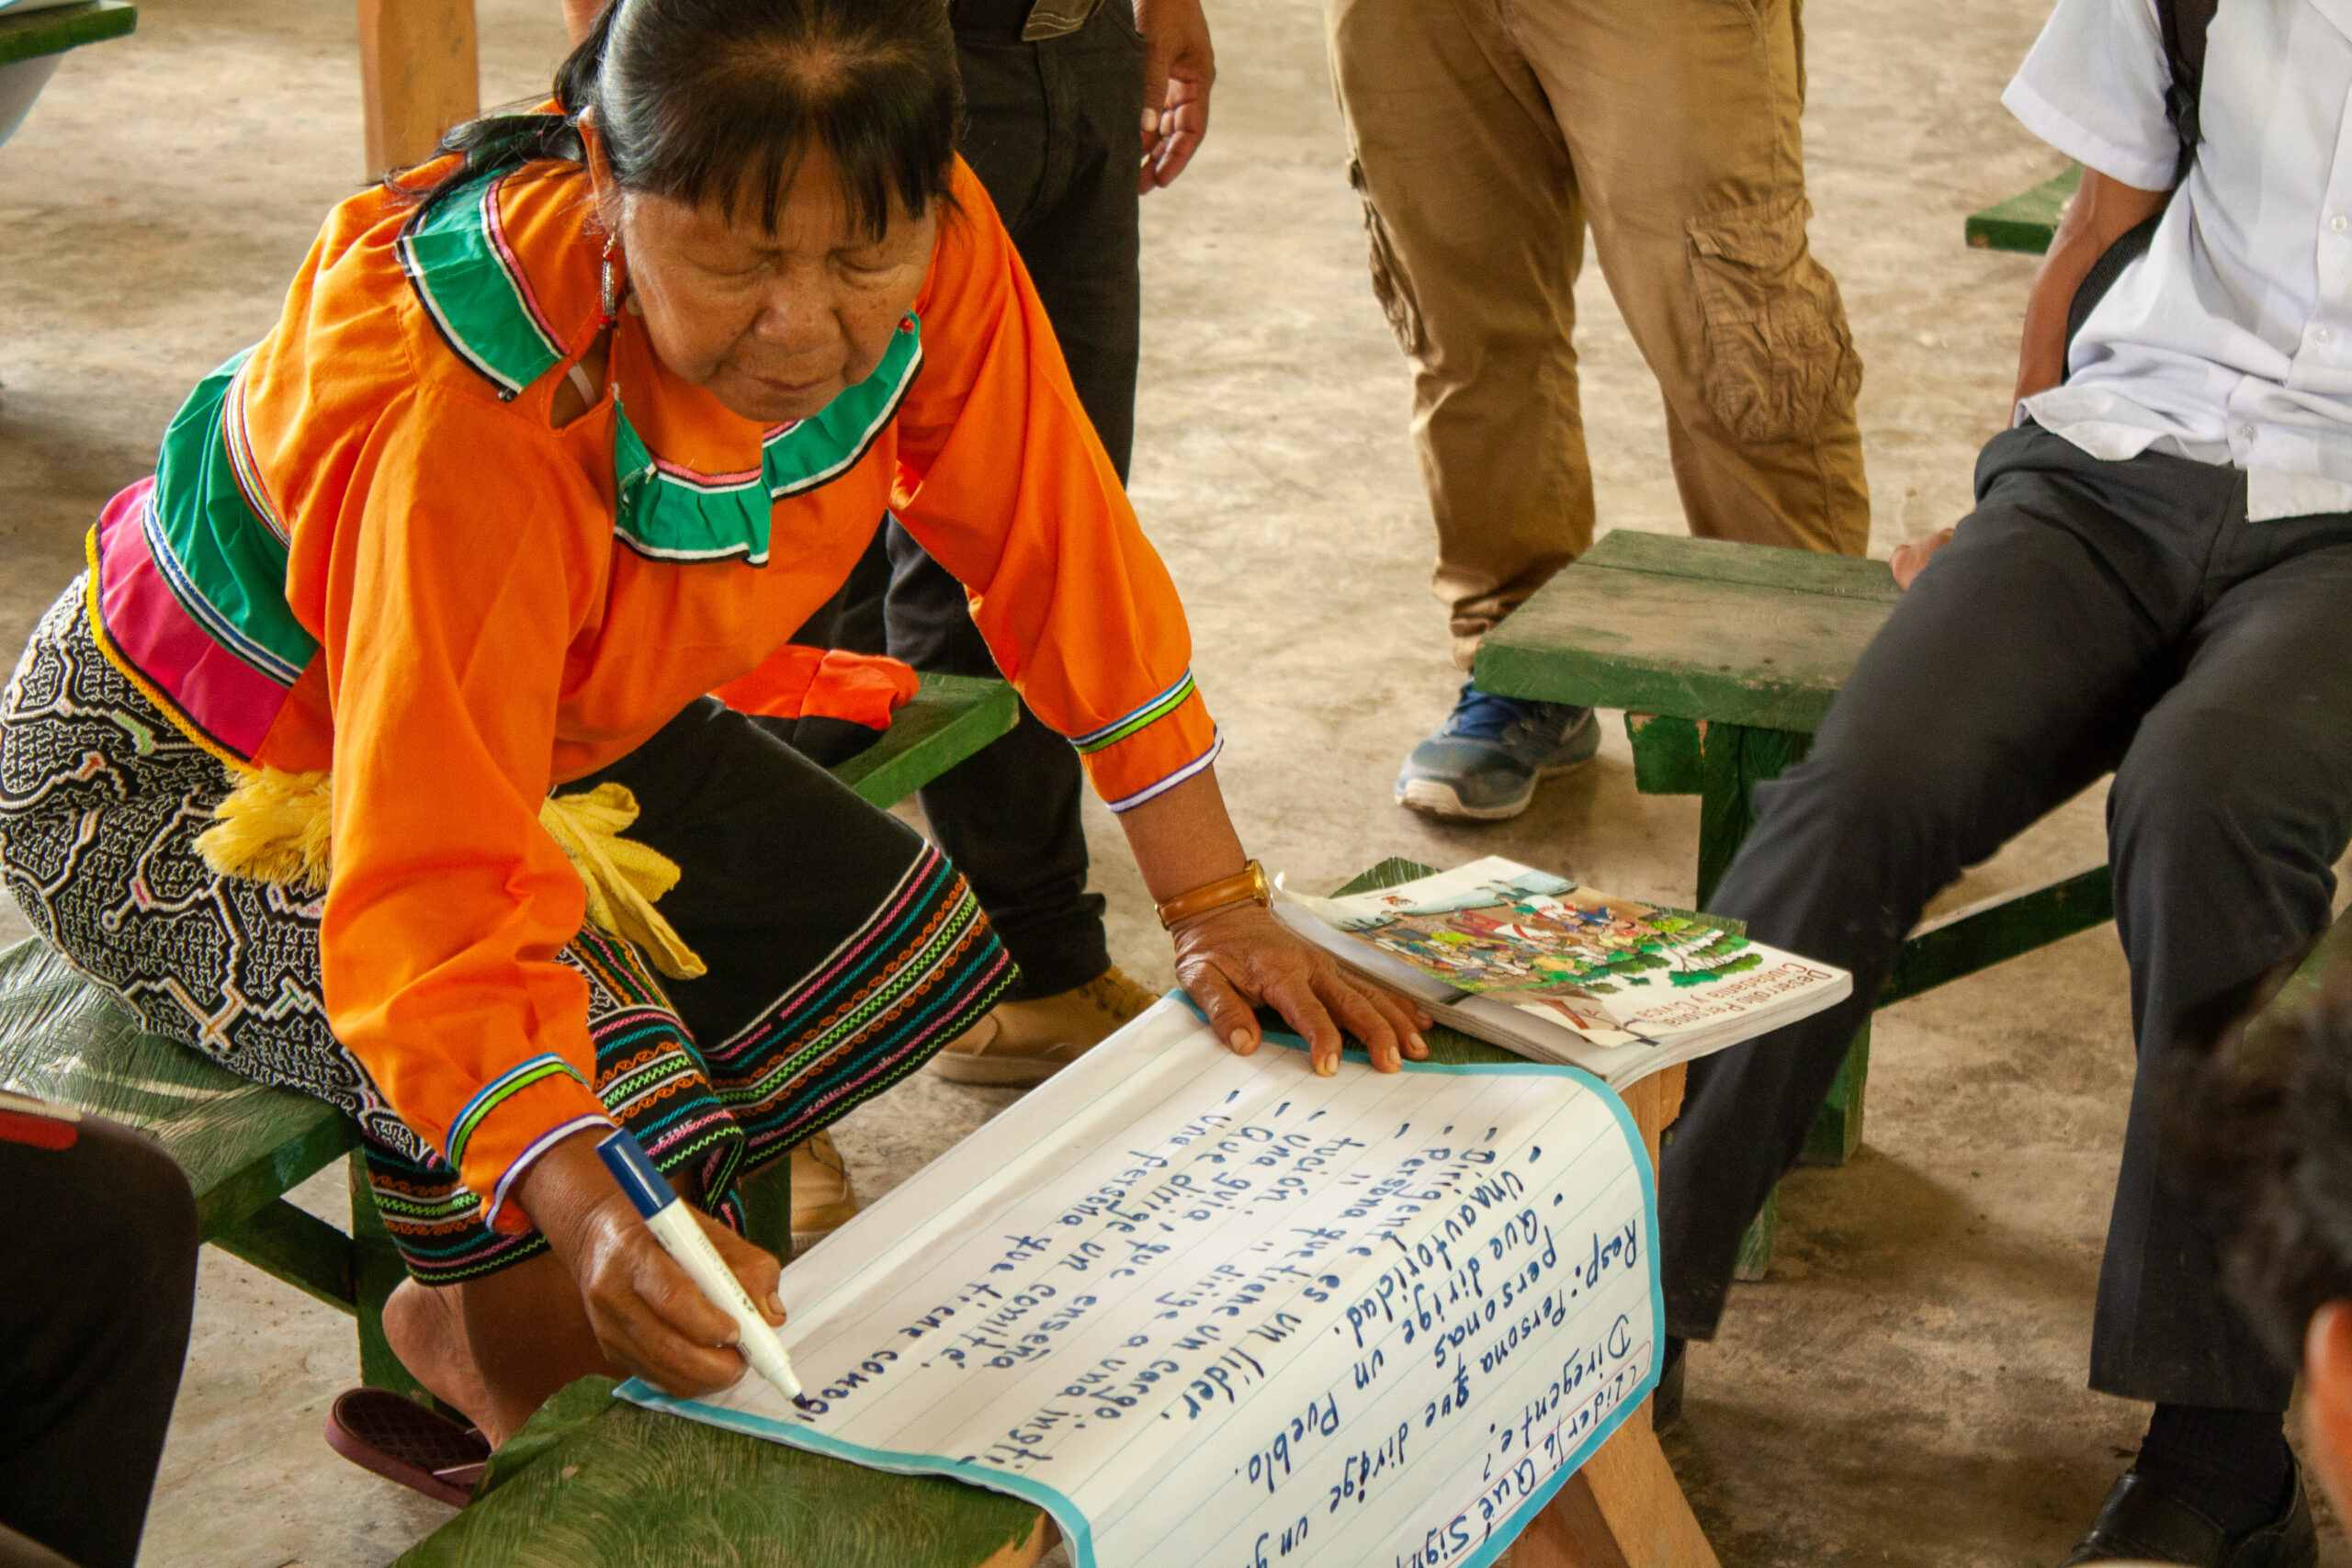 (Lider/¿Qué Sign
Diregente?
Resp: Persona que dirige un g
personas
- Que dirige un Pueblo.
- Una autoridad.
- Dirigente es un líder.
- Persona que tiene un cargo;
- " " dirige a una insti
tución.
- Una guia, que enseña
- Que dirige un comite.
- Una persona que tiene conosi
Desarrollo Personal,
Ciudadanía y Cívica